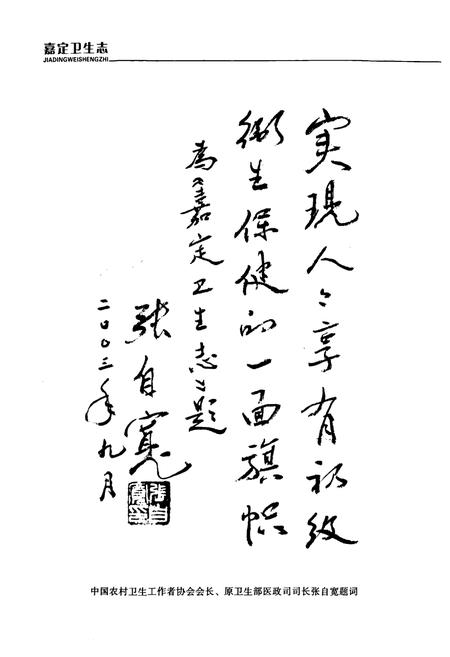 嘉定卫生志
JIADINGWEISHENGZHI
实现人々享有初级
衛生保健的一面旗帜
为《嘉定卫生志》题
张自宽
二〇〇三年九月
张自宽印
中国农村卫生工作者协会会长、原卫生部医政司司长张自宽题词